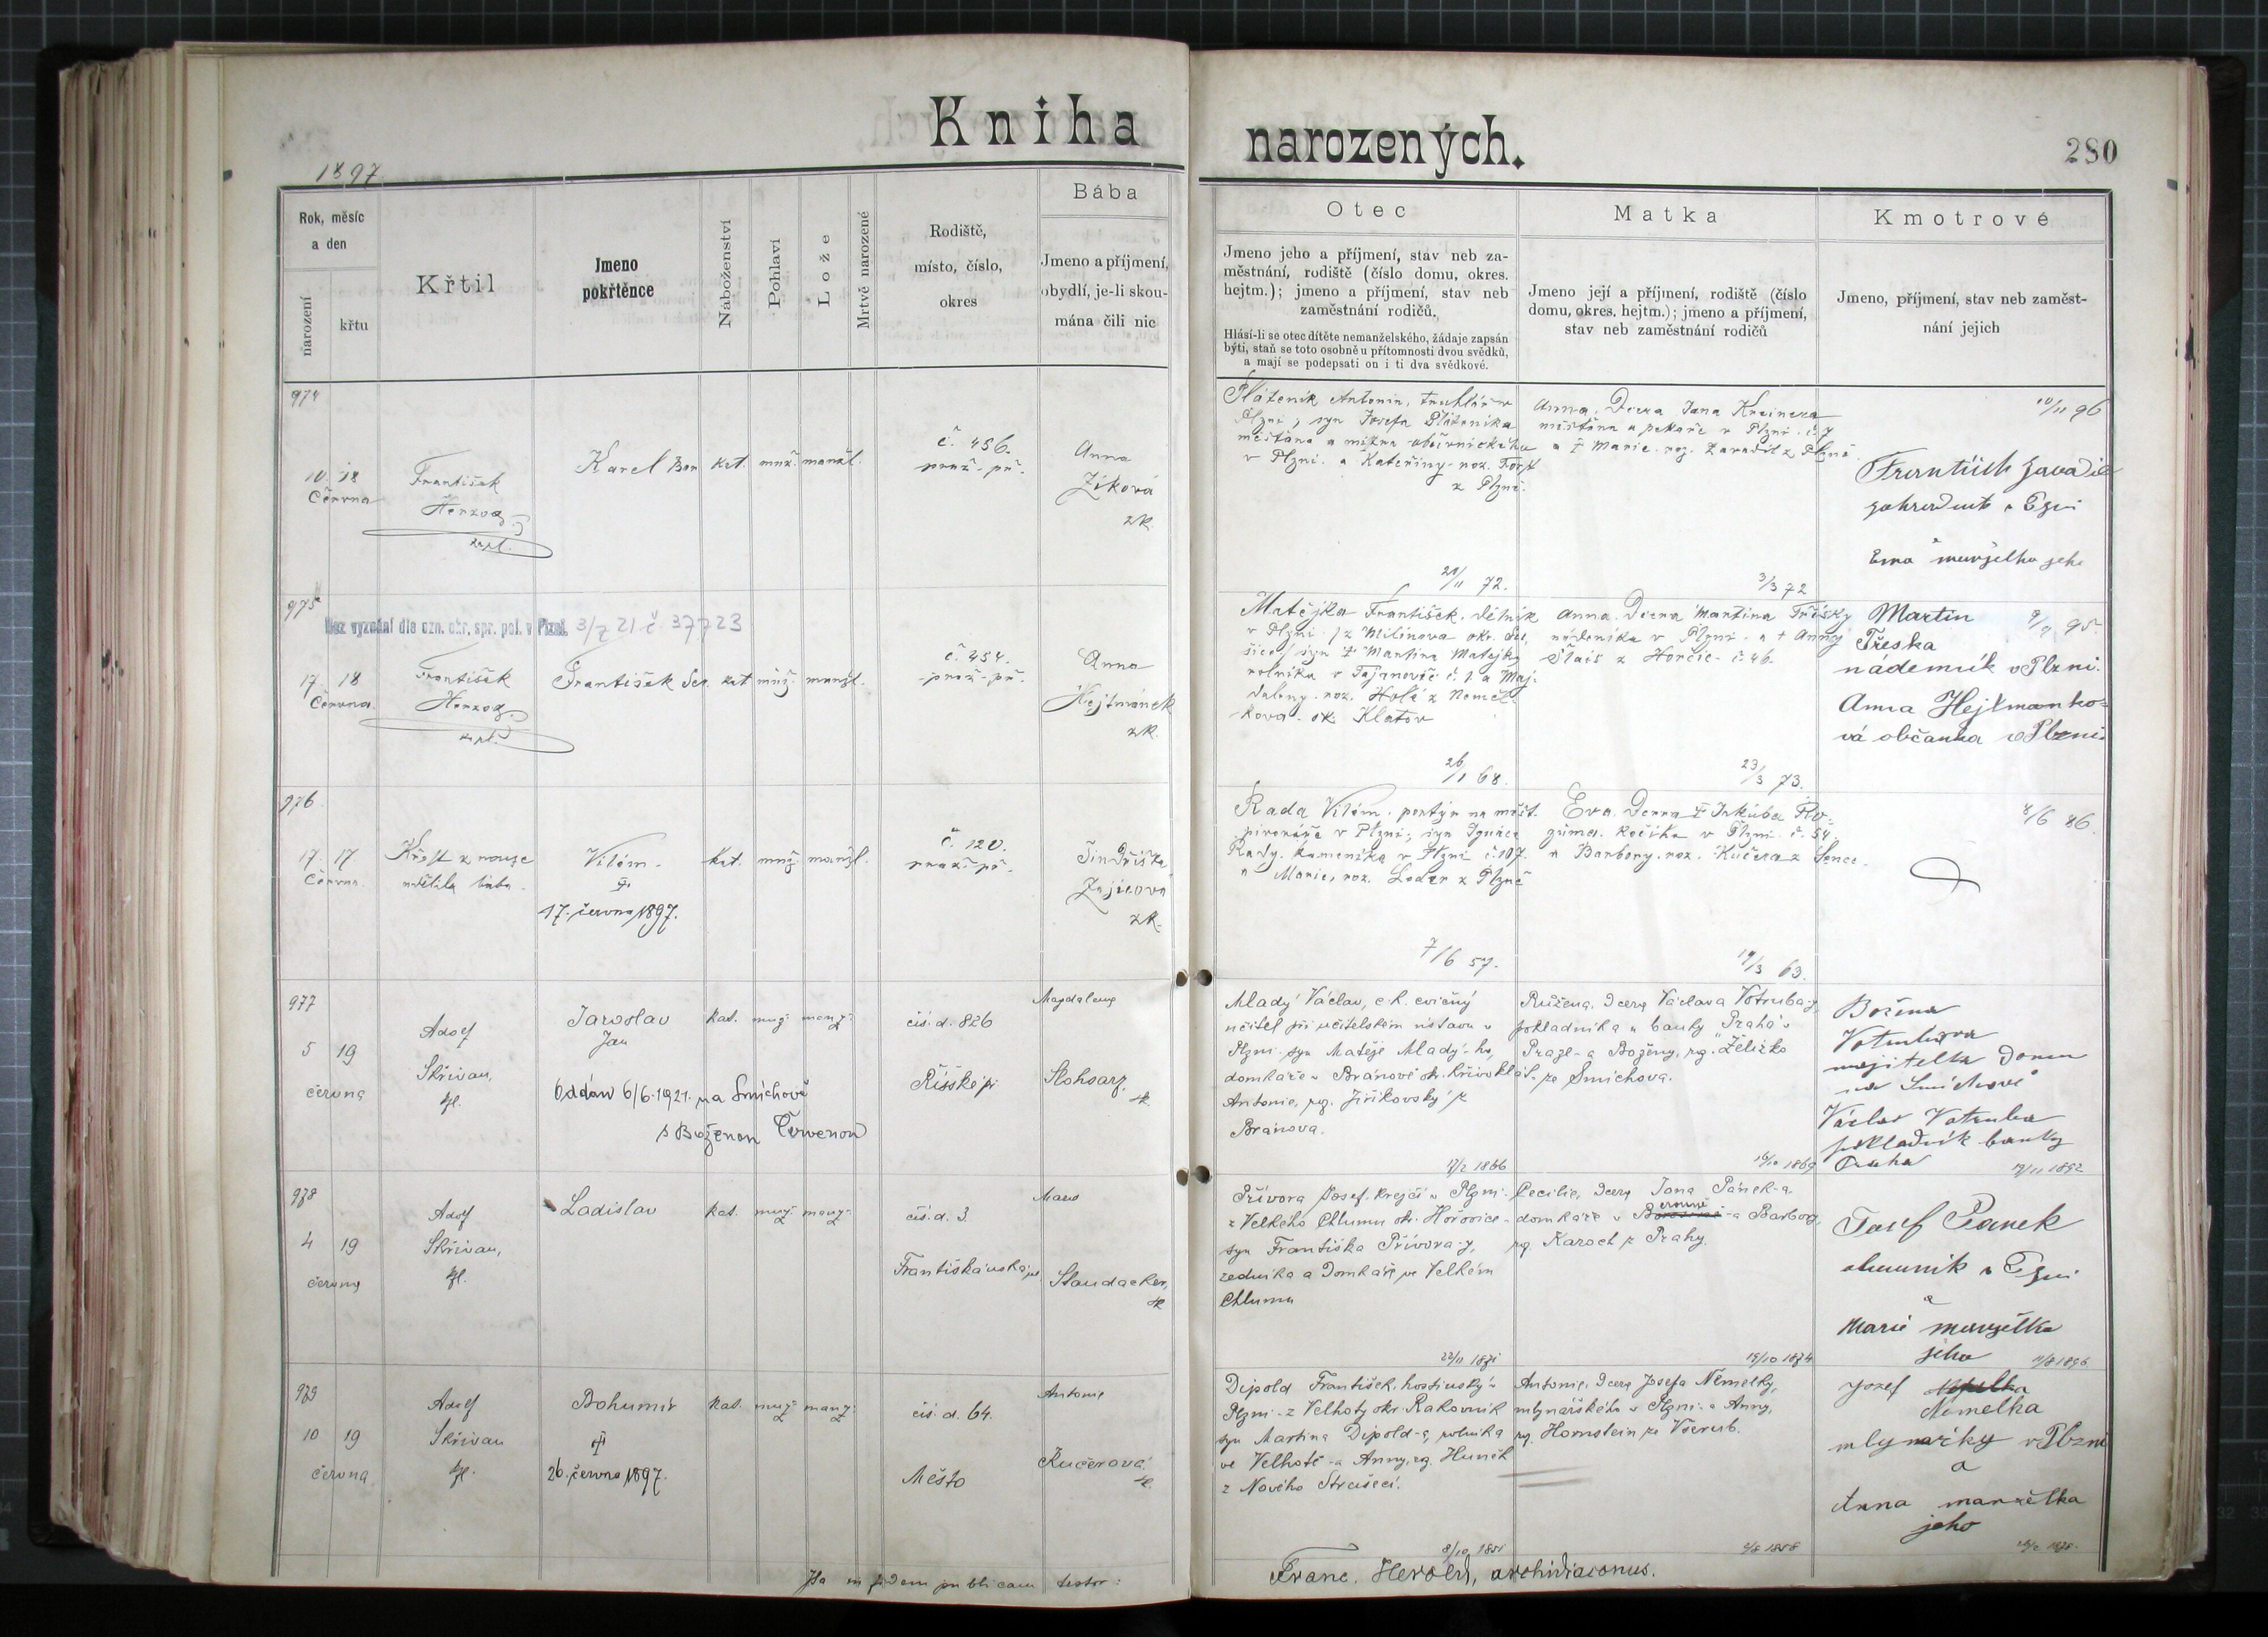 Kniha narozených.
280
1897
Rok, měsíc
a den
narození
křtu
Křtil
Jmeno
pokřtěnce
Náboženství
Pohlaví
Lože
Mrtvě narozené
Rodiště,
místo, číslo,
okres
Bába
Jmeno a příjmení,
obydlí, je-li skou-
mána čili nic
Otec
Jmeno jeho a příjmení, stav neb za-
městnání, rodiště (číslo domu, okres.
hejtm.); jmeno a příjmení, stav neb
zaměstnání rodičů.
Hlásí-li se otec dítěte nemanželského, žádaje zapsán
býti, staň se toto osobně u přítomnosti dvou svědků,
a mají se podepsati on i ti dva svědkové.
Matka
Jmeno její a příjmení, rodiště (číslo
domu, okres. hejtm.); jmeno a příjmení,
stav neb zaměstnání rodičů
Kmotrové
Jmeno, příjmení, stav neb zaměst-
nání jejich
974
10 18
Června
František
Herzog
kapl.
Karel
kat. muž. manžl.
č. 456.
praž. př.
Anna
Žíková
zk.
Antonín, truhlář v
Plzni, syn Josefa
měšťana a
v Plzni. a Kateřiny. roz.
z Plzně.
21/11 72.
Anna. Dcera Jana
měšťana a pekaře v Plzni. č. 7
a Marie. roz. Zavadil z Plzně.
3/3 72
10/11 96
František Zavadil
v Plzni
a
manželka jeho
975
Bez vyznání dle ozn. okr. spr. pol. v Plzni. 3/7 21 č. 37723
17 18
Června
František
Herzog
kapl.
František
kat. muž. manžl.
č. 454.
praž. př.
Anna
Hejtmánek
zk.
Matějka František. dělník
v Plzni / z Milinova okr.
syn Martina Matějky
rolníka v Tajanově č. 1. a Maj-
daleny. roz. Holé z Němčí-
kova. ok. Klatov
26/1 68.
Anna. Dcera Martina Třísky
nádeníka v Plzni. a † Anny
z Horčic. č. 46.
23/3 73.
Martin
Třeska
nádenník v Plzni.
Anna Hejtmanko-
vá občanka v Plzni
9/9 95.
976
17. 17
Června
Křest z nouze
udělila bába.
Vilém.
†
17. června 1897.
kat. muž. manžl.
č. 120.
praž. př.
Jindřiška
Zajícová
zk.
Rada Vilém. portýr na měšt.
pivováře v Plzni; syn Ignáce
Rady. kameníka v Plzni č. 107.
a Marie, roz. Loder z Plzně
7/6 57.
Eva. Dcera † Jakúba
kočího v Plzni. č. 54.
a Barbory. roz. Kučera z
19/3 63.
8/6 86.
977
5 19
června
Adolf
Skřivan,
kpl.
Jaroslav
Jan
Oddán 6/6. 1921. na Smíchově
s Boženou Červenou
kat. muž. manž.
čís. d. 826
Říšské př.
Magdalena
zk.
Mladý Václav, c. k. cvičný
učitel při učitelském ústavu v
Plzni. syn Matěje Mladý-ho,
domkáře v Branově okr. Křivoklát.
Antonie, roz. Jiřikovský z
Branova.
17/2 1866
Růžena. dcera Václava Votruba-y
pokladníka u banky "Praha" v
Praze - a Boženy, roz. Želizko
ze Smíchova.
16/10 1869
Božena
Votrubova
majitelka domu
na Smíchově
Václav Votruba
pokladník banky
Praha
17/11 1892
978
4 19
června
Adolf
Skřivan,
kpl.
Ladislav
kat. muž. manž.
čís. d. 3.
Františkánská př.
Marie
Staudacher,
zk.
Přívora Josef. krejčí v Plzni.
z Velkého Chlumu okr. Hořovice -
syn Františka Přívora-y,
zedníka a domkáře ve Velkém
Chlumu
22/11 1871
Cecilie, dcera Jana Pánek-a
domkáře v - a Barbory,
roz. Karoch z Prahy.
19/10 1874
Josef Panek
v Plzni
a
Marie manželka
jeho
11/8 1896.
979
10 19
června
Adolf
Skřivan
kpl.
Bohumír
†
26. června 1897.
kat. muž. manž.
čís. d. 64.
Město
Antonie
Kučerová
zk.
Dipold František, hostinský v
Plzni - z Velhoty okr. Rakovník
syn Martina Dipold-a, rolníka
ve Velhotě - a Anny, roz. Huněk
z Nového Strašecí.
8/10 1851
Antonie, dcera Josefa Němelky,
mlynářského v Plzni - a Anny,
roz. Hornstein ze Všerub.
1858
Jozef
Němelka
mlynařsky v Plzni
a
Anna manželka
jeho
Ita in fidem publicam testor:
Franc. Herold, archidiaconus.